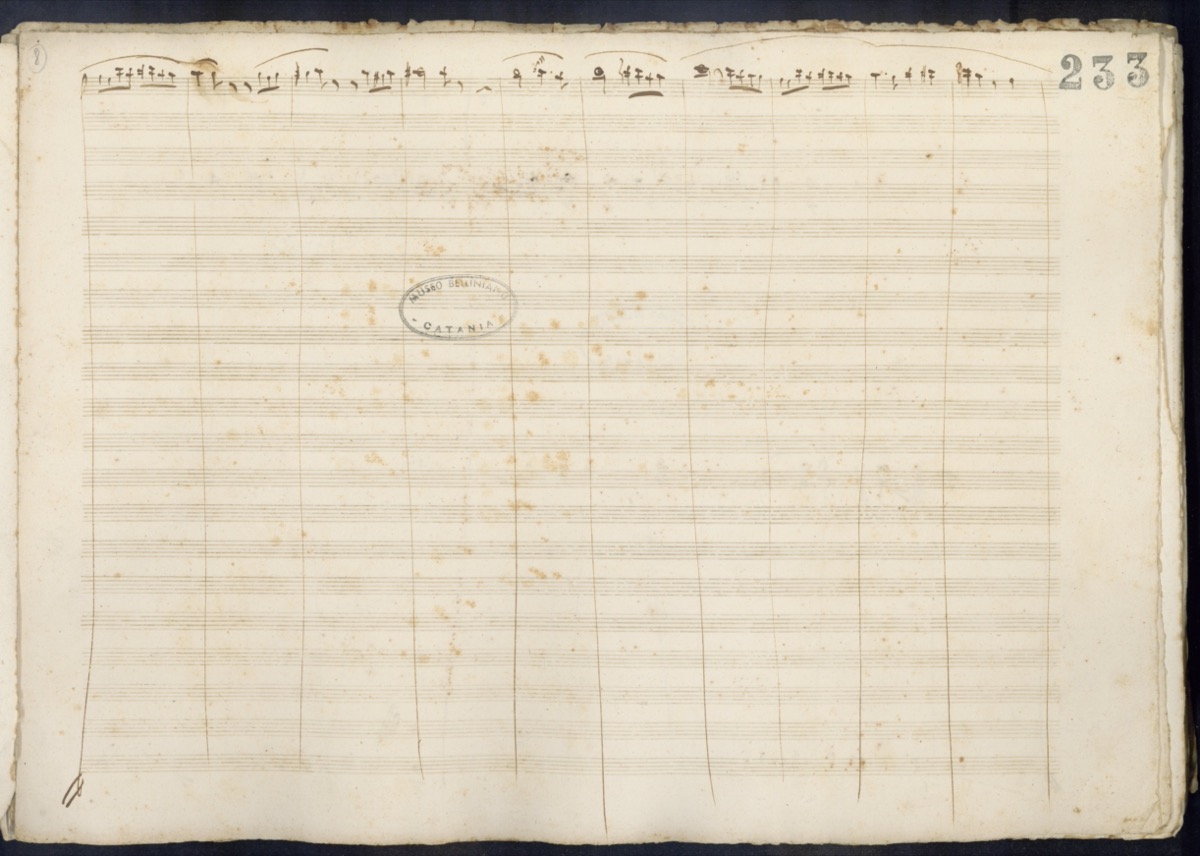 8
233
MUSEO BELLINIANO
- CATANIA -